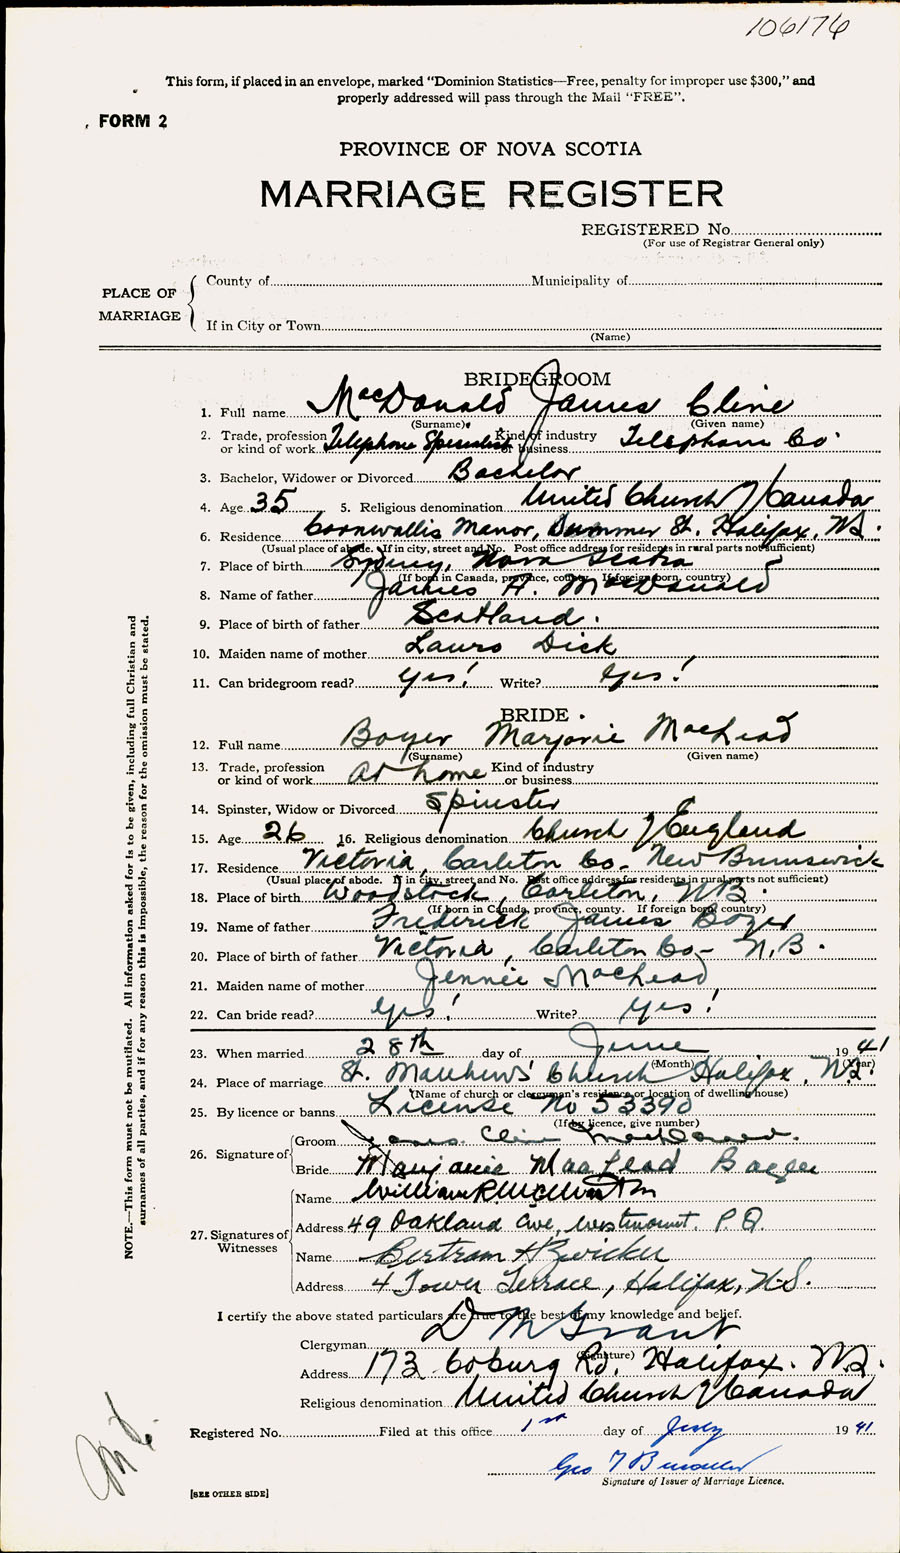 106176
This form, if placed in an envelope, marked "Dominion Statistics—Free, penalty for improper use $300," and
properly addressed will pass through the Mail "FREE".
FORM 2
PROVINCE OF NOVA SCOTIA
MARRIAGE REGISTER
REGISTERED No.
(For use of Registrar General only)
PLACE OF MARRIAGE
County of Municipality of
If in City or Town
(Name)
BRIDEGROOM
1. Full name MacDonald James Cline
(Surname) (Given name)
2. Trade, profession or kind of work Telephone Specialist Kind of industry or business Telephone Co.
3. Bachelor, Widower or Divorced Bachelor
4. Age 35 5. Religious denomination United Church of Canada
6. Residence Cornwallis Manor, Summer St. Halifax, N.S.
(Usual place of abode. If in city, street and No. Post office address for residents in rural parts not sufficient)
7. Place of birth Sydney, Nova Scotia
(If born in Canada, province, county. If foreign born, country)
8. Name of father James A. MacDonald
9. Place of birth of father Scotland.
10. Maiden name of mother Laura Dick
11. Can bridegroom read? Yes! Write? Yes!
BRIDE
12. Full name Boyer Marjorie MacLead
(Surname) (Given name)
13. Trade, profession or kind of work At home Kind of industry or business
14. Spinster, Widow or Divorced Spinster
15. Age 26 16. Religious denomination Church of England
17. Residence Victoria, Carleton Co. New Brunswick
(Usual place of abode. If in city, street and No. Post office address for residents in rural parts not sufficient)
18. Place of birth Woodstock, Carleton, N.B.
(If born in Canada, province, county. If foreign born, country)
19. Name of father Frederick James Boyer
20. Place of birth of father Victoria, Carleton Co- N.B.
21. Maiden name of mother Jennie MacLead
22. Can bride read? Yes! Write? Yes!
23. When married 28th day of June 1941
(Month) (Year)
24. Place of marriage St. Matthews' Church Halifax, N.S.
(Name of church or clergyman's residence or location of dwelling house)
25. By licence or banns License No 53390
(If by licence, give number)
26. Signature of Groom James Cline MacDonald.
Bride Marjorie MacLead Boyer
27. Signatures of Witnesses
Name William R.
Address 49 Oakland Ave, Westmount. P.Q.
Name Bertram H Zwicker
Address 4 Tower Terrace, Halifax, N.S.
I certify the above stated particulars are true to the best of my knowledge and belief.
Clergyman D M Grant
(Signature)
Address 173 Coburg Rd, Halifax. N.S.
Religious denomination United Church of Canada
Registered No. Filed at this office 1st day of July 1941
Geo T
Signature of Issuer of Marriage Licence.
[SEE OTHER SIDE]
NOTE.—This form must not be mutilated. All information asked for is to be given, including full Christian and
surnames of all parties, and if for any reason this is impossible, the reason for the omission must be stated.